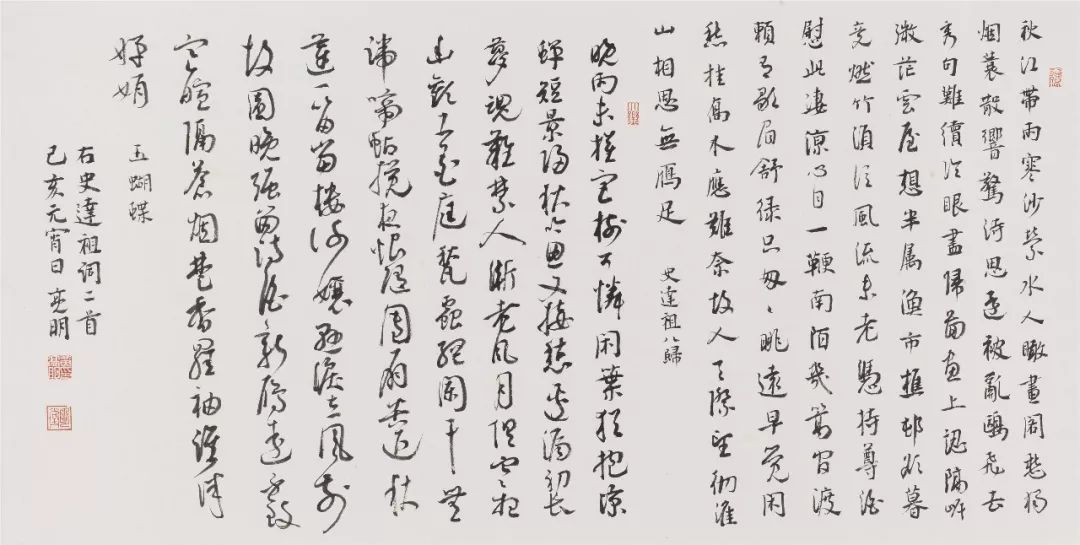 秋江帶雨寒沙縈水人瞰畫閣愁獨
烟蓑散響驚诗思還被亂鷗飛去
秀句難續冷眼盡歸圖畫上認隔岸
微茫雲屋想半属漁市樵邨欲暮
竞燃竹須信風流未老憑持尊酒
慰此凄凉心目一鞭南陌幾篙官渡
賴有歌眉舒緑只匆〻眺遠早覺闲
愁挂喬木應難奈故人天際望徹淮
山相思無鴈足 史達祖八歸
晚雨未摧宫樹可憐闲葉猶抱凉
蟬短景歸秋吟思又接愁邊漏初長
夢魂難禁人漸老風月俱寒想
幽歡土花庭甃蟲網闌干無
端啼蛄攪夜恨隨團扇苦近秋
蓮一笛當樓謝娘懸淚立風前
故園晚强留詩酒新鴈遠不致
寒暄隔蒼烟楚香羅袖誰伴
嬋娟
玉蝴蝶
右史達祖詞二首
己亥元宵日亮明